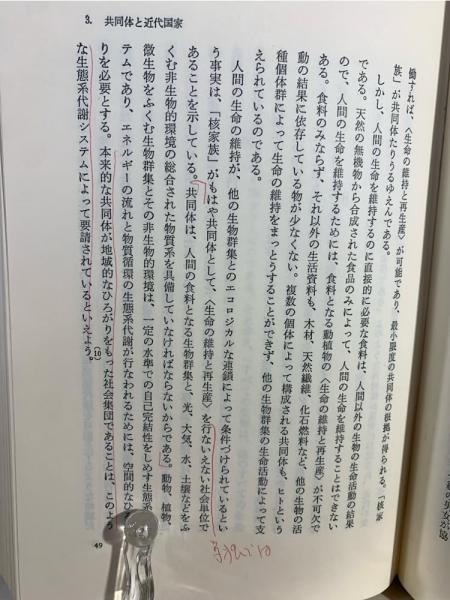 3. 共同体と近代国家
働すれば、〈生命の維持と再生産〉が可能であり、最小限度の共同体の根拠が得られる。「核家
族」が共同体たりうるゆえんである。
しかし、人間の生命を維持するのに直接的に必要な食料は、人間以外の生物の生命活動の結果
である。天然の無機物から合成された食品のみによって、人間の生命を維持することはできない
ので、人間の生命を維持するためには、食料となる動植物の〈生命の維持と再生産〉が不可欠で
ある。食料のみならず、それ以外の生活資料も、木材、天然繊維、化石燃料など、他の生物の活
動の結果に依存している物が少なくない。複数の個体によって構成される共同体も、ヒトという
種個体群によって生命の維持をまっとうすることができず、他の生物群集の生命活動によって支
えられているのである。
人間の生命の維持が、他の生物群集とのエコロジカルな連鎖によって条件づけられているとい
う事実は、「核家族」がもはや共同体として、〈生命の維持と再生産〉を行ないえない社会単位で
あることを示している。共同体は、人間の食料となる生物群集と、光、大気、水、土壌などをふ
くむ非生物的環境の総合された物質系を具備していなければならないからである。動物、植物、
微生物をふくむ生物群集とその非生物的環境は、一定の水準での自己完結性をしめす生態系
テムであり、エネルギーの流れと物質循環の生態系代謝が行なわれるためには、空間的なひ
りを必要とする。本来的な共同体が地域的なひろがりをもった社会集団であることは、このよう
な生態系代謝システムによって要請されているといえよう。(10)
49